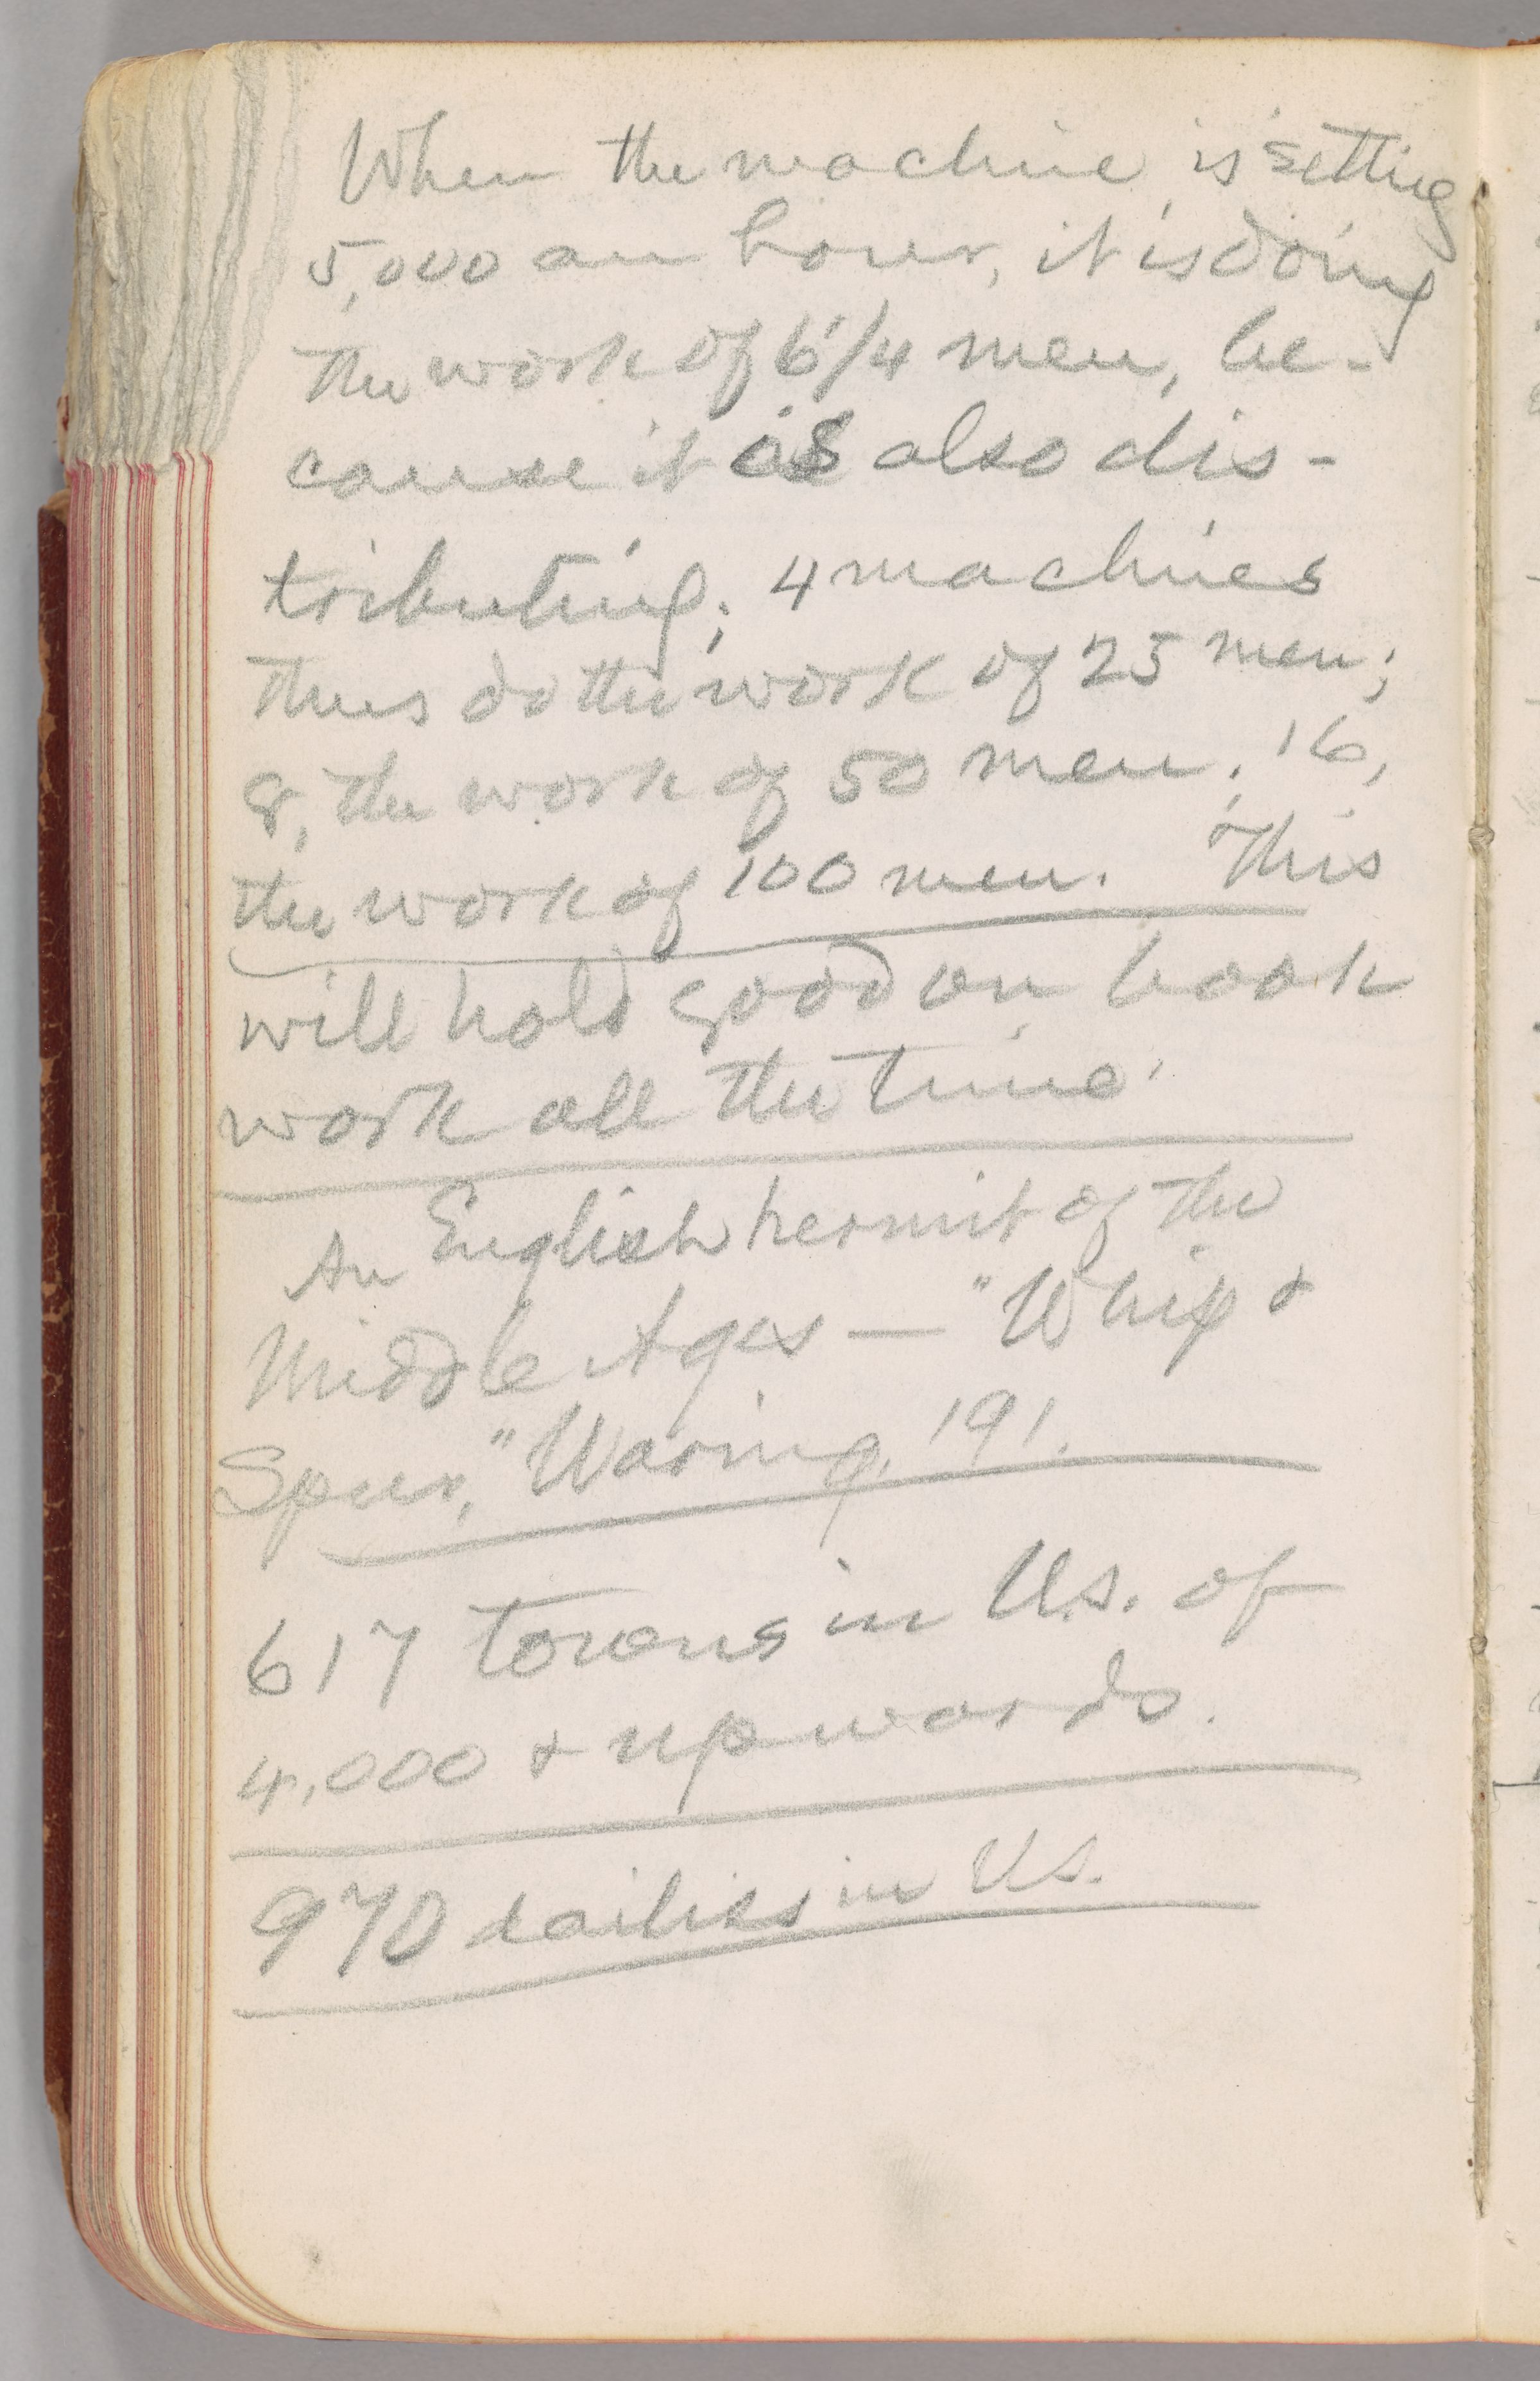 When the machine is setting
5,000 an hour, it is doing
the work of 6 1/4 men, be-
cause it is also dis-
tributing; 4 machines
thus do the work of 25 men;
8, the work of 50 men; 16,
the work of 100 men. This
will hold good on book
work all the time.
An English hermit of the
Middle Ages — "Whip &
Spur," Waring, 191.
617 towns in U.S. of
4,000 & upwards.
970 dailies in U.S.